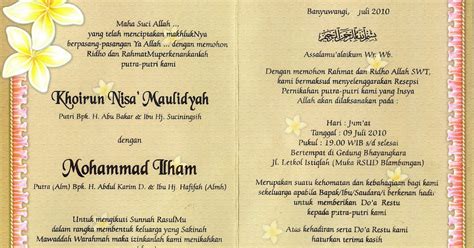 Maha Suci Allah ...
yang telah menciptakan makhlukNya
berpasang-pasangan Ya Allah ... dengan memohon
Ridho dan RahmatMuperkenankanlah
putra-putri kami
Khoirun Nisa' Maulidyah
Putri Bpk. H. Abu Bakar & Ibu Hj. Suciningsih
dengan
Mohammad Ilham
Putra (Alm) Bpk. H. Abdul Karim D. & Ibu Hj. Hafifah (Almh)
Untuk mengikuti Sunnah RasulMu
dalam rangka membentuk keluarga yang Sakinah
Mawaddah Warahmah maka izinkanlah kami menikahkan
Banyuwangi, juli 2010
Assalamu'alaikum Wr. Wb.
Dengan memohon Rahmat dan Ridho Allah SWT,
kami bermaksud menyelenggarakan Resepsi
Pernikahan putra-putri kami yang Insya Allah
akan dilaksanakan pada :
Hari : Jum'at
Tanggal : 09 Juli 2010
Pukul : 19.00 WIB s/d selesai
Bertempat di Gedung Bhayangkara
Jl. Letkol Istiqlah (Muka RSUD Blambangan)
Merupakan suatu kehormatan dan kebahagiaan bagi kami
sekeluarga apabila Bapak/Ibu/Saudara/i berkenan hadir
untuk memberikan Do'a Restu
kepada putra-putri kami
Atas kehadiran serta Do'a Restu kami
haturkan terima kasih